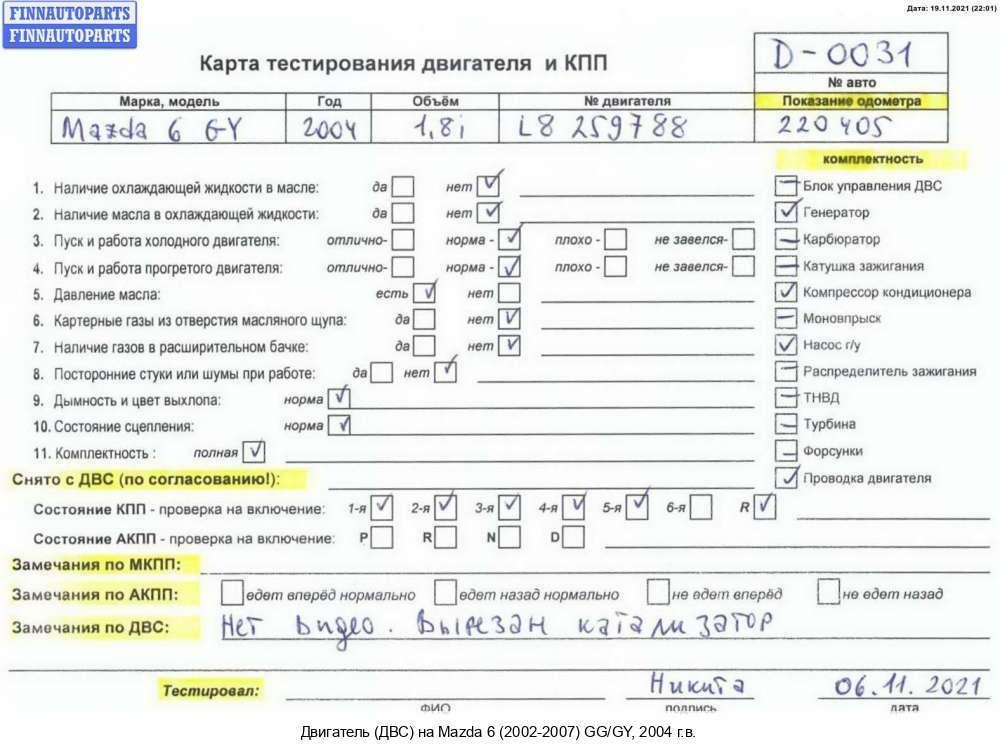 FINNAUTOPARTS
FINNAUTOPARTS
Дата: 19.11.2021 (22:01)
Карта тестирования двигателя и КПП
D-0031
№ авто
Марка, модель Год Объём № двигателя Показание одометра
Mazda 6 GY 2004 1,8i L8 259788 220405
комплектность
1. Наличие охлаждающей жидкости в масле: да нет
Блок управления ДВС
2. Наличие масла в охлаждающей жидкости: да нет
Генератор
3. Пуск и работа холодного двигателя: отлично- норма - плохо - не завелся-
Карбюратор
4. Пуск и работа прогретого двигателя: отлично- норма - плохо - не завелся-
Катушка зажигания
5. Давление масла: есть нет
Компрессор кондиционера
6. Картерные газы из отверстия масляного щупа: да нет
Моновпрыск
7. Наличие газов в расширительном бачке: да нет
Насос г/у
8. Посторонние стуки или шумы при работе: да нет
Распределитель зажигания
9. Дымность и цвет выхлопа: норма
ТНВД
10. Состояние сцепления: норма
Турбина
11. Комплектность : полная
Форсунки
Снято с ДВС (по согласованию!):
Проводка двигателя
Состояние КПП - проверка на включение: 1-я 2-я 3-я 4-я 5-я 6-я R
Состояние АКПП - проверка на включение: P R N D
Замечания по МКПП:
Замечания по АКПП: едет вперёд нормально едет назад нормально не едет вперёд не едет назад
Замечания по ДВС: Нет видео. Вырезан катализатор
Тестировал: Никита 06.11.2021
ФИО подпись дата
Двигатель (ДВС) на Mazda 6 (2002-2007) GG/GY, 2004 г.в.